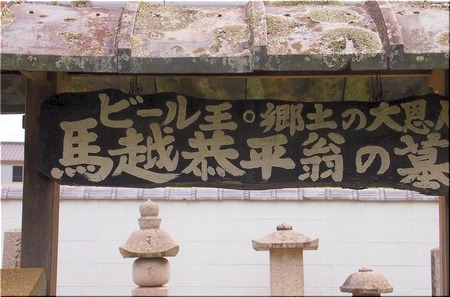 ビール王。郷土の大恩人
馬越恭平翁の墓